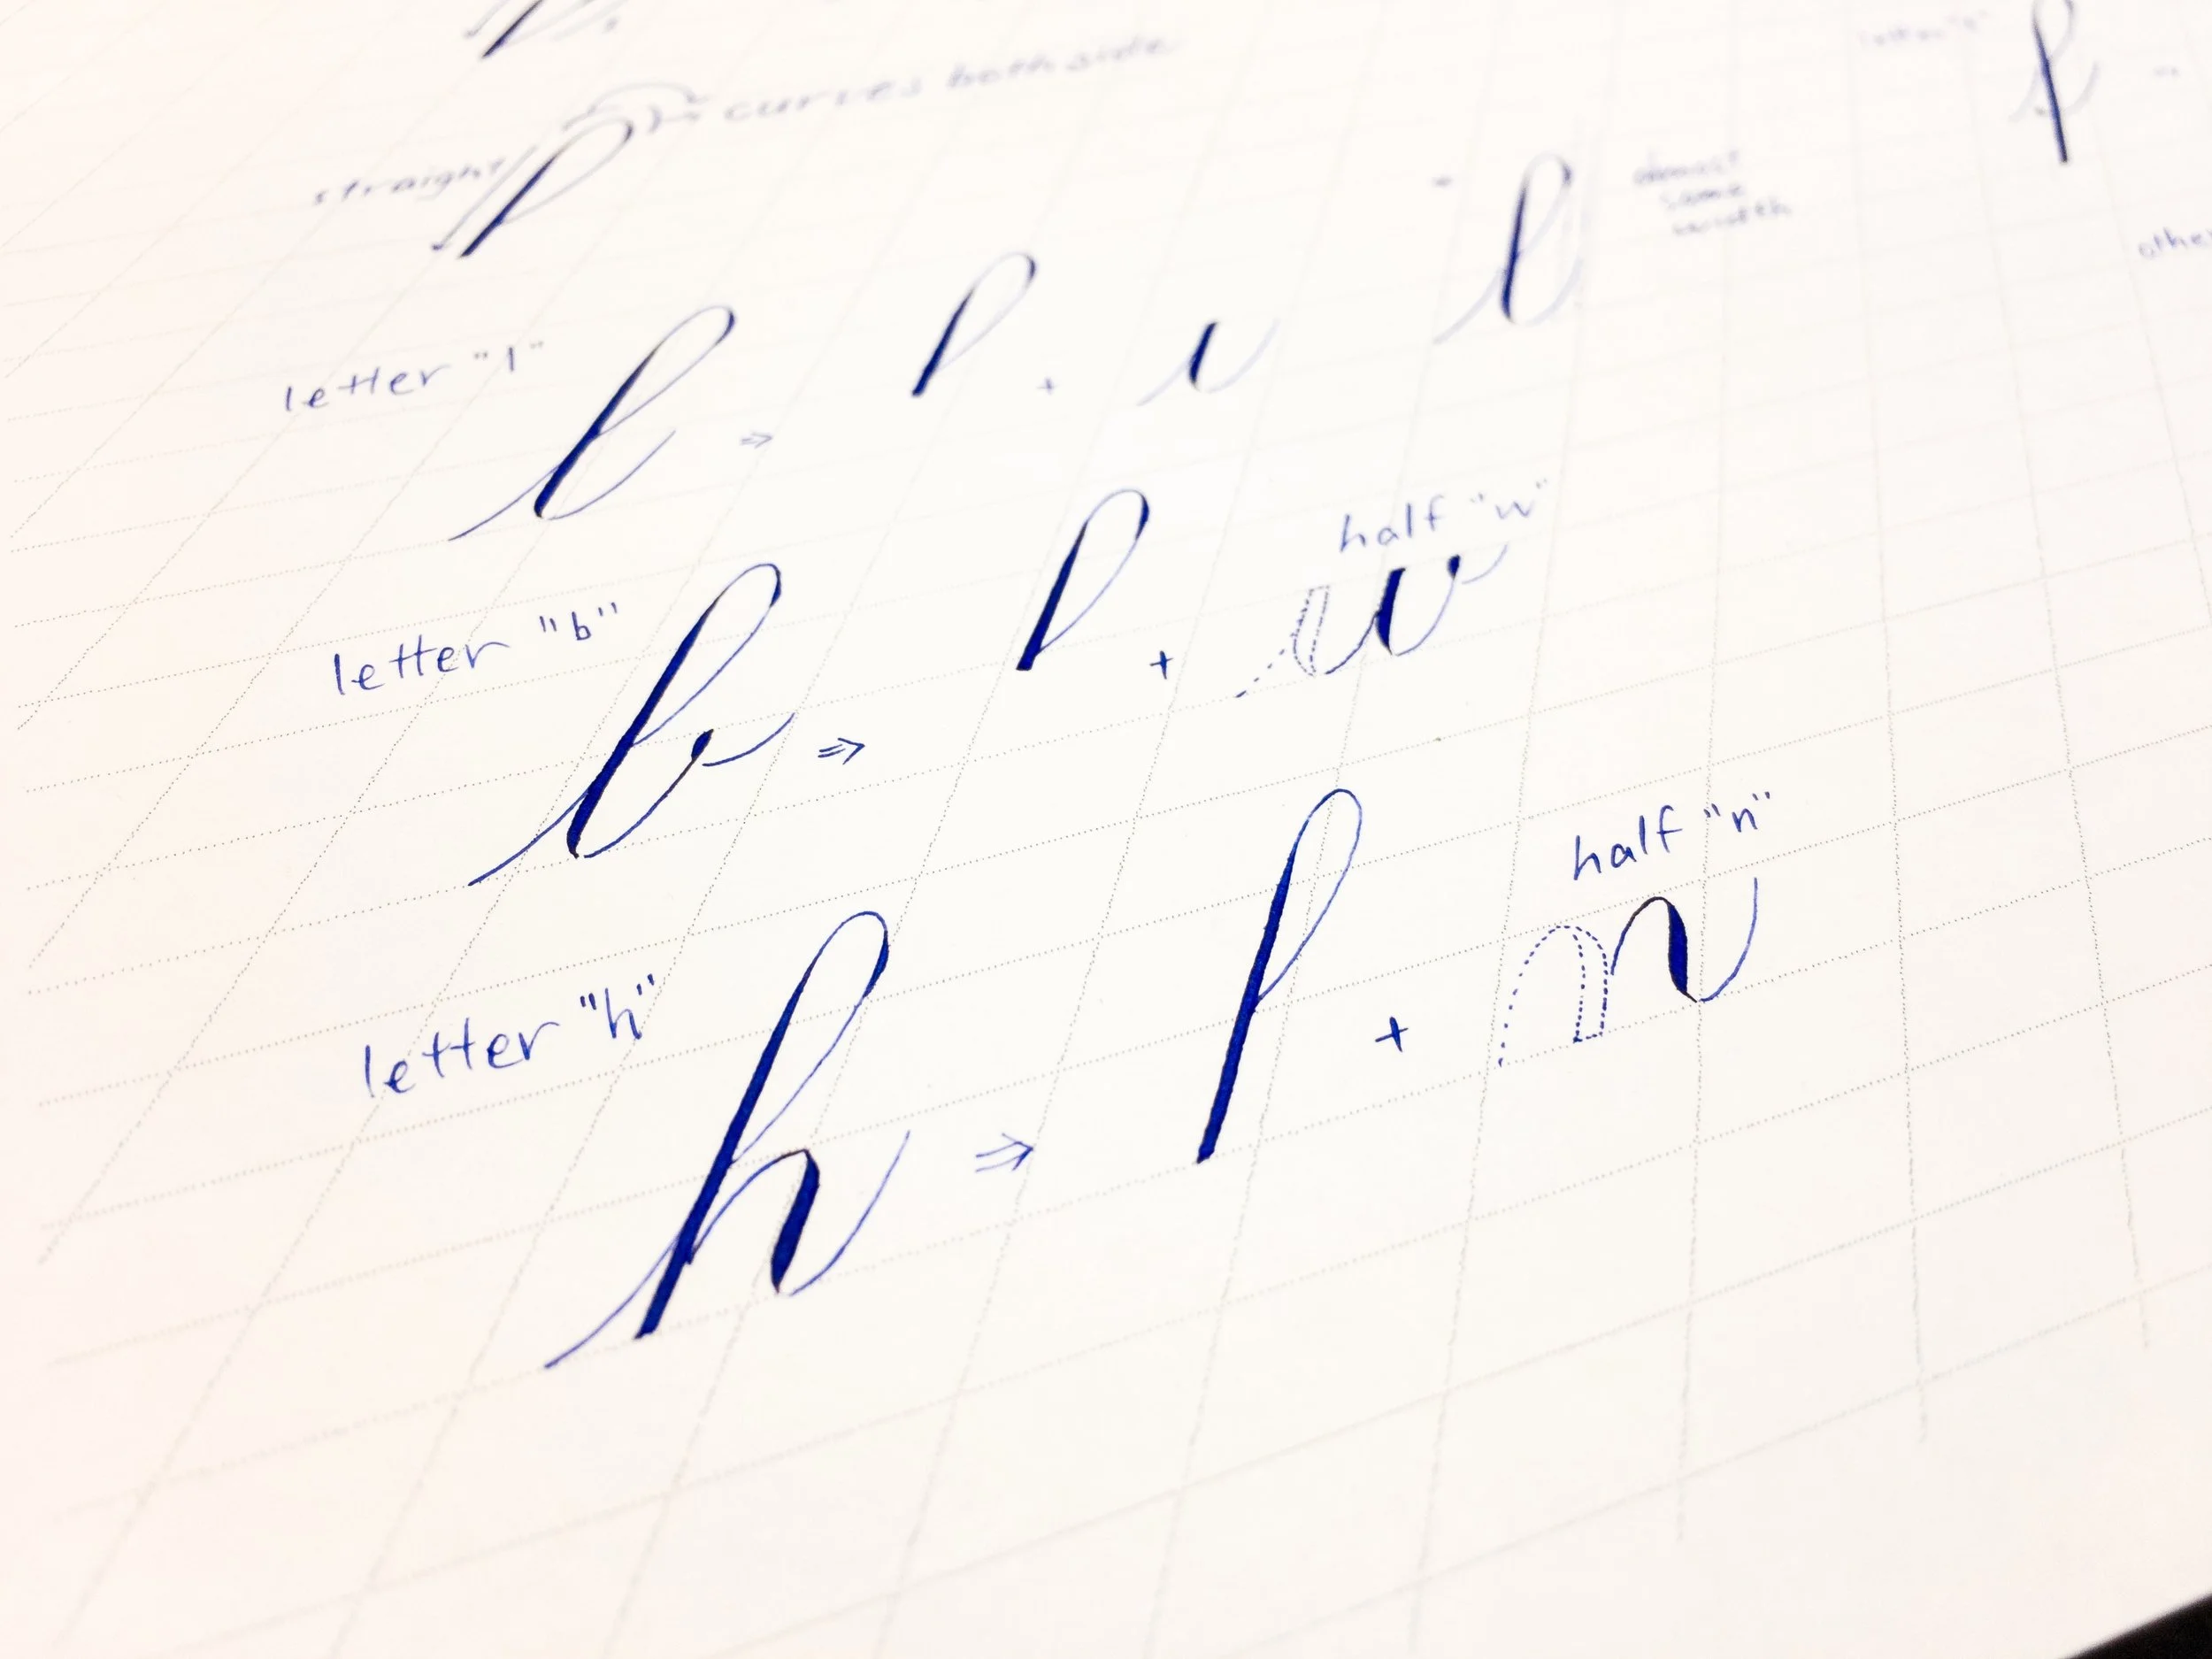 curves both side
straight
almost
same
width
othe
letter "l" l ⇒ l + ι
letter "b" b ⇒ l + w
half "w"
letter "h" h ⇒ l + n
half "n"